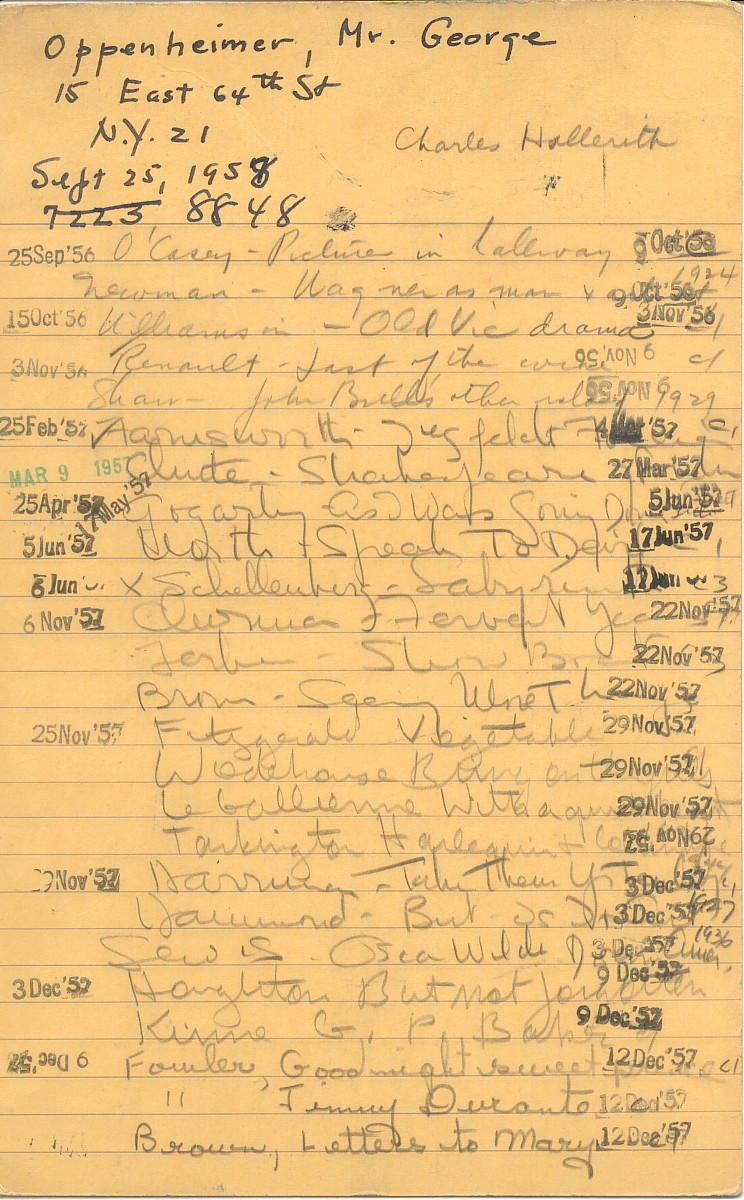 Oppenheimer, Mr. George
15 East 64th St
N.Y. 21
Charles Hollerith
Sept 25, 1958
7223 8848
25Sep'56 O'Casey - Pictures in hallway 9 Oct'56
Newman - Wagner as man & 1924 9 Oct'56
15Oct'56 Williamson - Old Vic drama 3 Nov'56
3Nov'56 Renault - Last of the wine 9 Nov'56 cl
Shaw - John Bull's other 9 Nov'56 1929
25Feb'57 Farnsworth - Ziegfeld '57
MAR 9 1957 Chute - Shakespeare 27 Mar'57
25Apr'57 17May'57 Gogarty - As I Was Going Down 5Jun'57
5Jun'57 North - Speak To Me 17Jun'57
6 Jun X Schellenberg - Labyrinth 17Jun 3
6 Nov'57 Clurman - Fervent Years 22Nov'57
Ferber - Show Boat 22Nov'57
Brown - Seeing 22Nov'57
25Nov'57 Fitzgerald Vegetable 29Nov'57
Wodehouse Bring on the 29Nov'57
Le Gallienne With a quiet 29Nov'57
Tarkington Harlequin & 29Nov'57
29Nov'57 Harriman - Take Them Up 3Dec'57
Hammond - But - Is 3Dec'57
Lewis - Oscar Wilde 3 Dec'57 1936
9 Dec'57
3Dec'57 Houghton But not forgotten
Kinne G. P. Baker 9 Dec'57
9 Dec'57 Fowler, Good night sweet prince 12Dec'57 cl
" Jimmy Durante 12Dec'57
Brown, Letters to Mary 12Dec'57